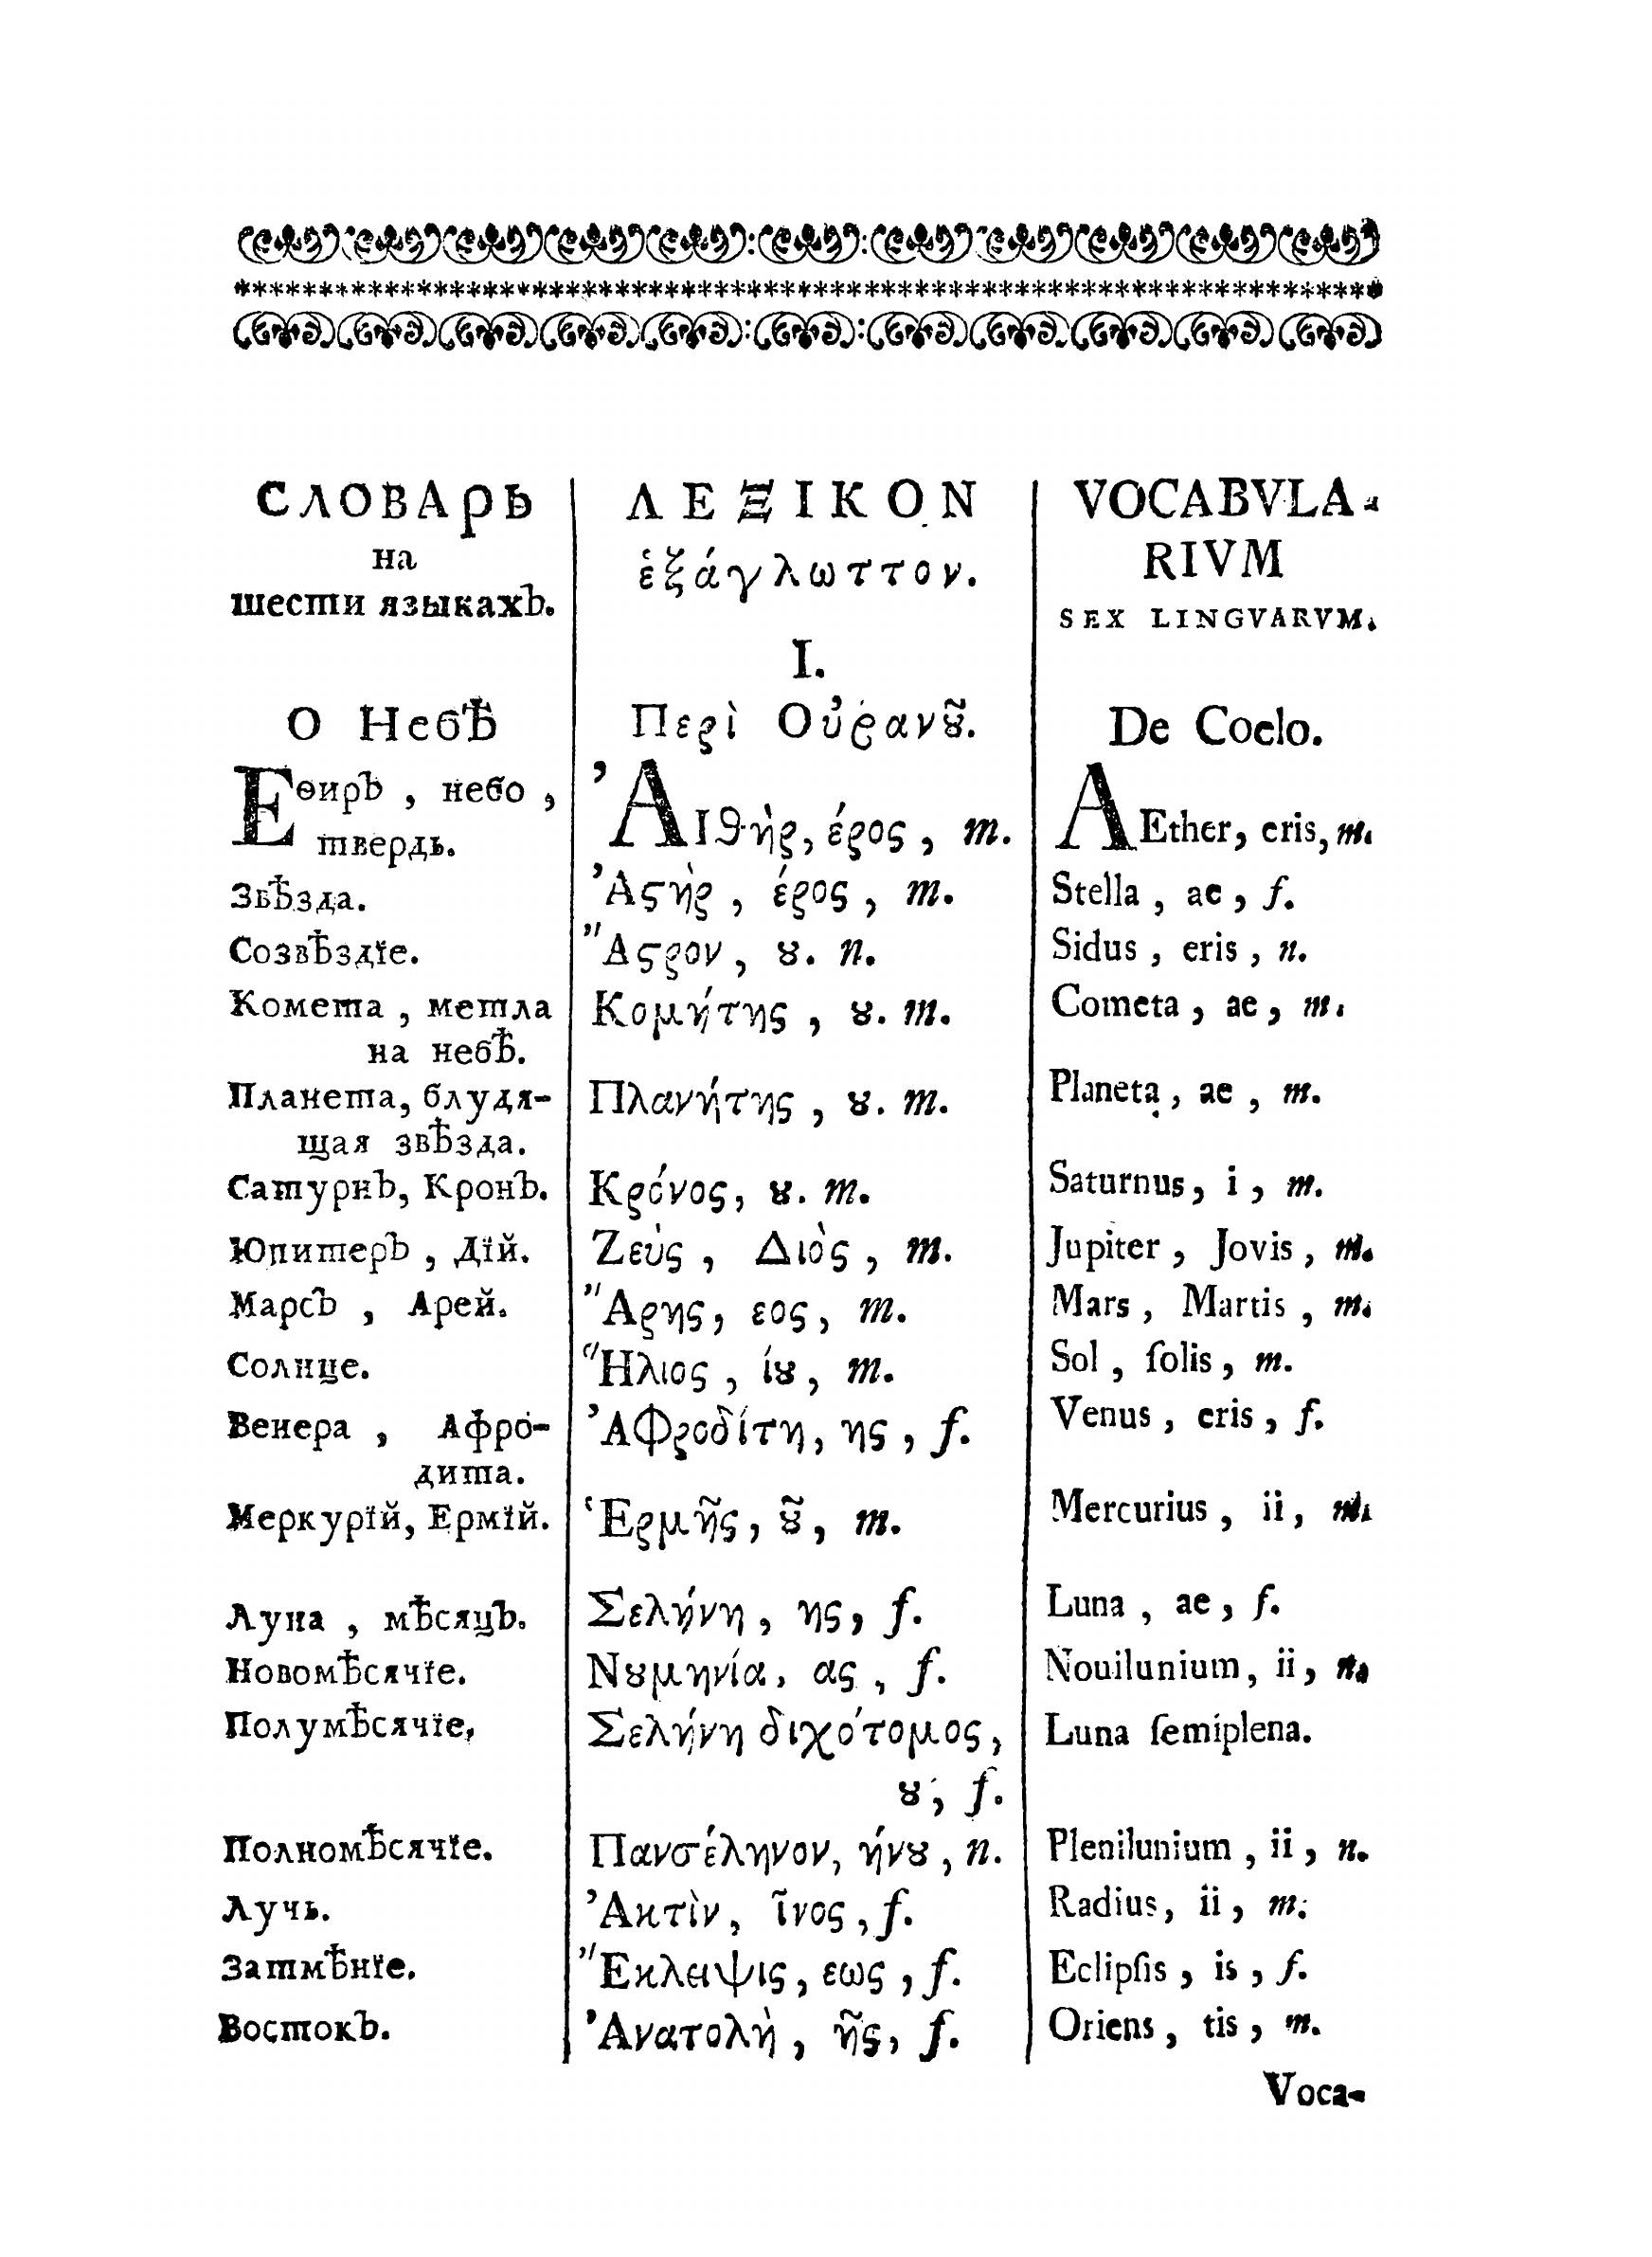 СЛОВАРЬ
на
шести языкахЪ.
ΛΕΞΙΚΟΝ
ἑξάγλωττον.
VOCABVLA-
RIVM
SEX LINGVARVM.
I.
О НебѢ
Περὶ Οὐρανȣ͂.
De Coelo.
ЕѳирЪ, небо,
твердь.
ἈΙθὴρ, έρος, m.
AEther, eris, m.
ЗвѢзда.
Ἀϛὴρ, έρος, m.
Stella, ae, f.
СозвѢздїе.
Ἄϛρον, ȣ. n.
Sidus, eris, n.
Комета, метла
на небѢ.
Κομήτης, ȣ. m.
Cometa, ae, m.
Планета, блудя-
щая звѢзда.
Πλανήτης, ȣ. m.
Planeta, ae, m.
СатурнЪ, КронЪ.
Κρόνος, ȣ. m.
Saturnus, i, m.
ЮпитерЪ, Дїй.
Ζεὺς, Διὸς, m.
Jupiter, Jovis, m.
МарсЪ, Арей.
Ἄρης, εος, m.
Mars, Martis, m.
Солнце.
Ἥλιος, ίȣ, m.
Sol, ſolis, m.
Венера, Афро-
дита.
Ἀφροδίτη, ης, f.
Venus, eris, f.
Меркурїй, Ермїй.
Ἑρμῆς, ȣ͂, m.
Mercurius, ii, m.
Луна, мѢсяцЪ.
Σελήνη, ης, f.
Luna, ae, f.
НовомѢсячїе.
Νȣμηνία, ας, f.
Nouilunium, ii, n.
ПолумѢсячїе,
Σελήνη διχότομος,
ȣ, f.
Luna ſemiplena.
ПолномѢсячїе.
Πανσέληνον, ήνȣ, n.
Plenilunium, ii, n.
Лучь.
Ἀκτὶν, ῖνος, f.
Radius, ii, m.
ЗатмѢнїе.
Ἔκλειψις, εως, f.
Eclipſis, is, f.
ВостокЪ.
Ἀνατολὴ, ῆς, f.
Oriens, tis, m.
Voca-